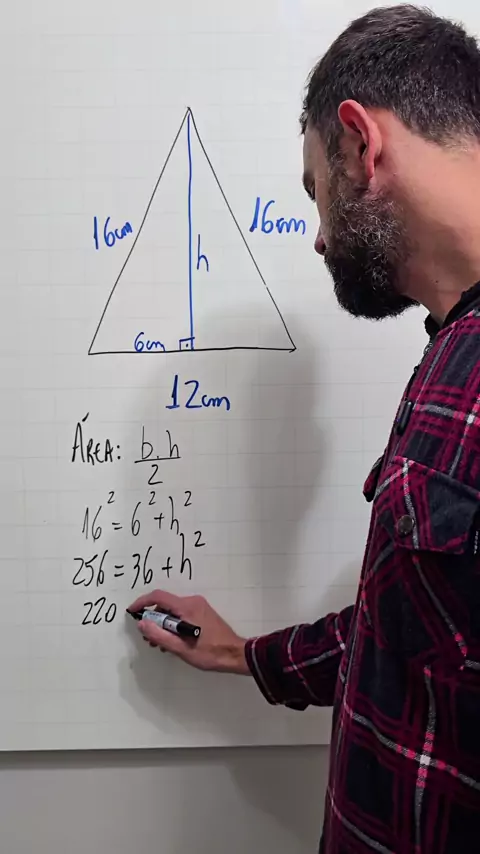 16cm
16cm
h
6cm
12cm
ÁREA: b.h
2
16² = 6² + h²
256 = 36 + h²
220